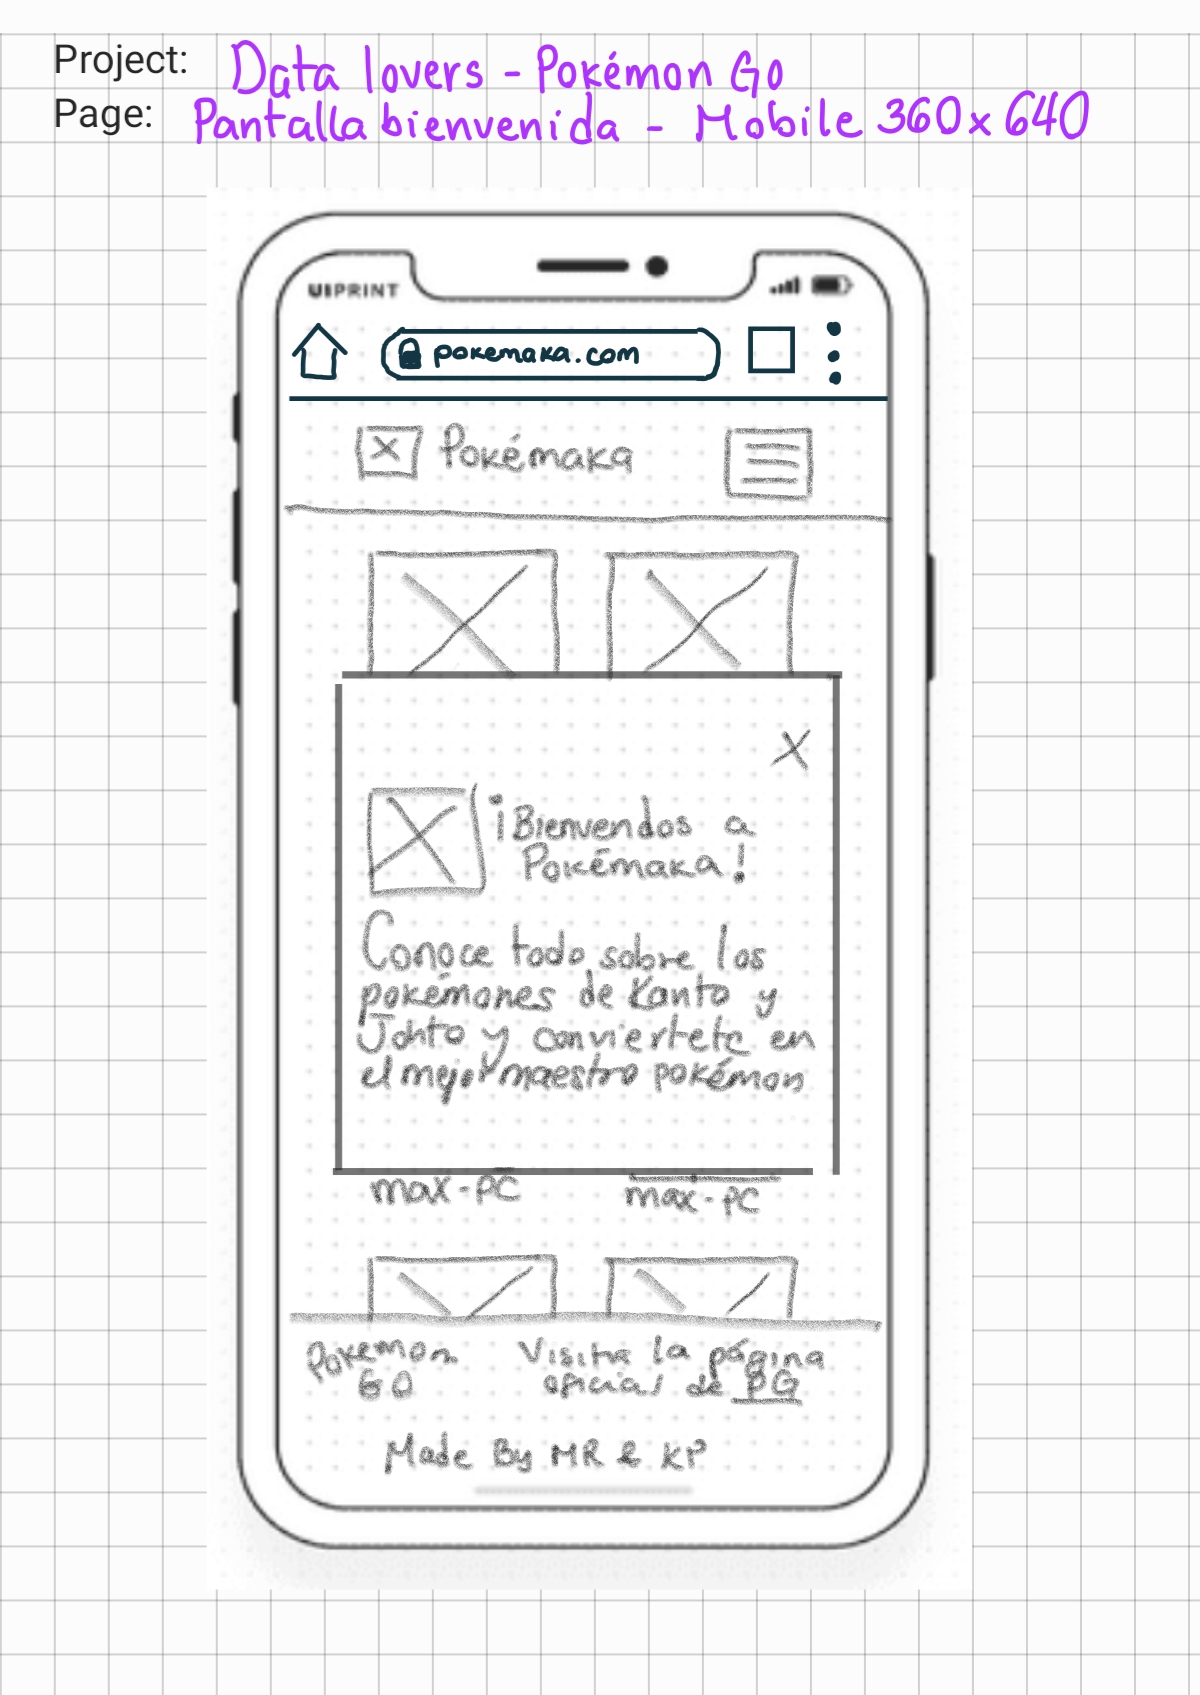 Project: Data lovers - Pokémon Go
Page: Pantalla bienvenida - Mobile 360x640
UIPRINT
pokemaka.com
Pokémaka
X
¡Bienvendos a
Pokémaka!
Conoce todo sobre los
pokémones de Kanto y
Johto y conviertete en
el mejor maestro pokémon
max-PC max-PC
Pokemon
GO
Visita la página
oficial de PG
Made By MR & KP